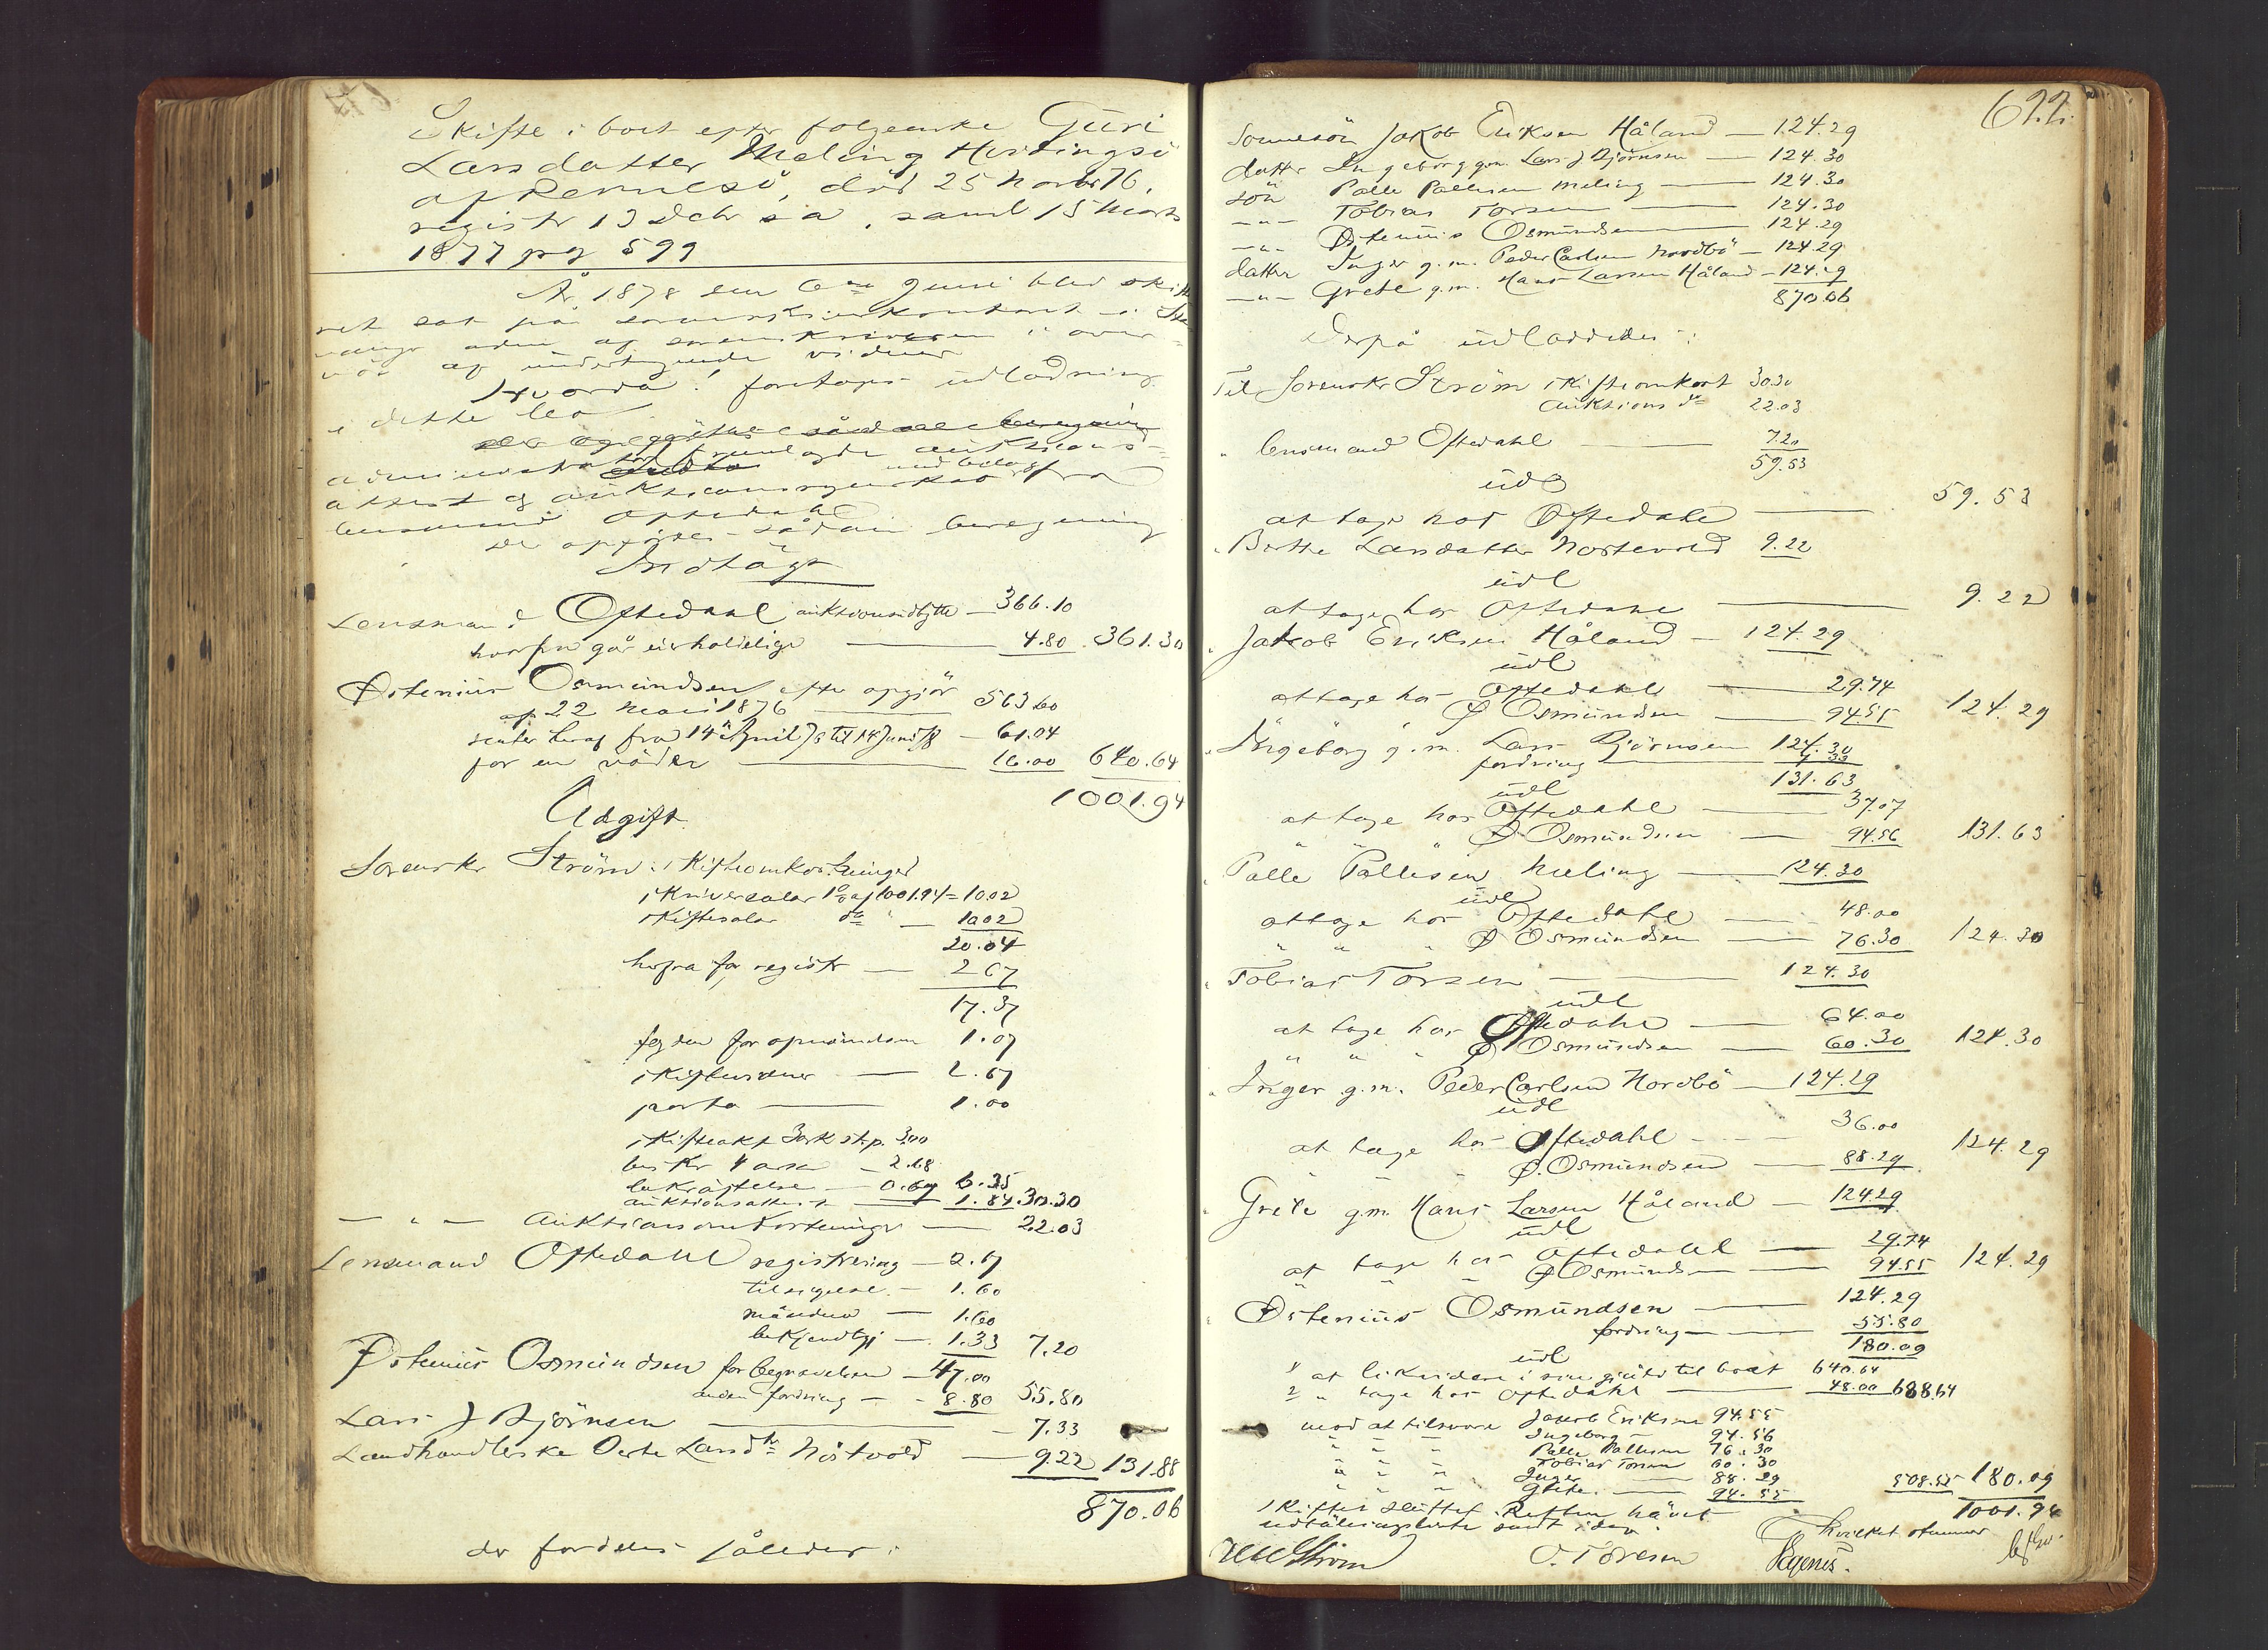 Skifte i boet efter følgeenke Güri
Larsdatter Meling Hestingsö
af Rennesö, död 25 Novbr 76,
registr 13 Debr s a, samt 15 Marts
1877 pg 599
År 1878 den 6te Juni blev skifte
ret sat på sorenskriverkontoret i Sta
vanger aden af sorenskriveren i over
vær af undertegnede vidner
Hvorda: foretages udlodning
i dette bo
administrator fremlagde auktions
attest og auktionsregnskab med bilag fra
lensmand Oftedahl
der opgjöres sådan beregning
Indtägt
Lensmand Oftedahl auktionsudbytte — 366.10
hvorfra går uerholdelige — 4.80 361.30
Østenius Osmundsen efter opgjör
af 22 Mai 1876 — 563.60
renter heraf fra 14 April 76 til 14 Juni 78 — 61.04
for en — 16.00 640.64
1001.94
Udgift
Sorenskr Ström: skifteomkostninger
skriversalar 1% af 1001.94 = 10.02
skiftesalar do — 10.02
20.04
herfra for registr — 2.67
17.37
fogden for opnævnelsen 1.07
skiftevidner — 2.67
porto — 1.00
skifteakt 3 ark st.p. 3.00
beskr 4 ark — 2.68
bekräftelse — 0.67 6.35
auktionsattest — 1.84 30.30
— " — Auktionsomkostninger — 22.03
Lensmand Oftedahl registrering — 2.67
tilsigelse — 1.60
mændene — 1.60
bekjendtgj — 1.33 7.20
Østenius Osmundsen for begravelsen — 47.00
anden fordring — 8.80 55.80
Lars J Bjørnsen — 7.33
Landhandlerske Berte Larsdtr Nostvold — 9.22 131.88
870.06
der fordeles således:
622.
Sönnesön Jakob Eriksen Håland — 124.29
datter Ingeborg g.m. Lars J Bjørnsen — 124.30
sön Palle Pallesen Meling — 124.30
— " — Tobias Torsen — 124.30
— " — Østenius Osmundsen — 124.29
datter Inger g.m. Peder Carlsen Nordbö — 124.29
— " — Grete g.m. Hans Larsen Håland — 124.29
870.06
Derpå udloddedes:
Til Sorenskr Ström skifteomkost 30.30
Auktions do 22.03
" lensmand Oftedahl — 7.20
59.53
udl
at tage hos Oftedahl — 59.53
" Berthe Larsdatter Nostevold 9.22
udl
at tage hos Oftedahl — 9.22
" Jakob Eriksen Håland — 124.29
udl
at tage hos Oftedahl — 29.74
" " " Ø Osmundsen — 94.55 124.29
" Ingeborg g.m. Lars Bjørnsen 124.30
fordring — 7.33
131.63
udl
at tage hos Oftedahl — 37.07
" " " Ø Osmundsen — 94.56 131.63
" Palle Pallesen Meling — 124.30
udl
at tage hos Oftedahl — 48.00
" " " Ø Osmundsen — 76.30 124.30
" Tobias Torsen — 124.30
udl
at tage hos Oftedahl — 64.00
" " " Ø Osmundsen — 60.30 124.30
" Inger g.m. Peder Carlsen Nordbö — 124.29
udl
at tage hos Oftedahl — 36.00
Ø. Osmundsen — 88.29 124.29
" Grete g.m. Hans Larsen Håland — 124.29
udl
at tage hos Oftedahl — 29.74
" " " Ø Osmundsen — 94.55 124.29
Østenius Osmundsen — 124.29
fordring — 55.80
180.09
udl
1 at likvidere i sin gjäld til boet 640.64
2 " tage hos Oftedahl — 48.00 688.64
mod at tilsvare Jakob Eriksen 94.55
" " " Ingeborg — 94.56
" " " Palle Pallesen 76.30
" " " Tobias Torsen 60.30
" " " Inger — 88.29
" " " Grete — 94.55 508.55 180.09
1001.94
Skiftet sluttet. Retten hävet
hvilket stemmer
Ström O. Toresen